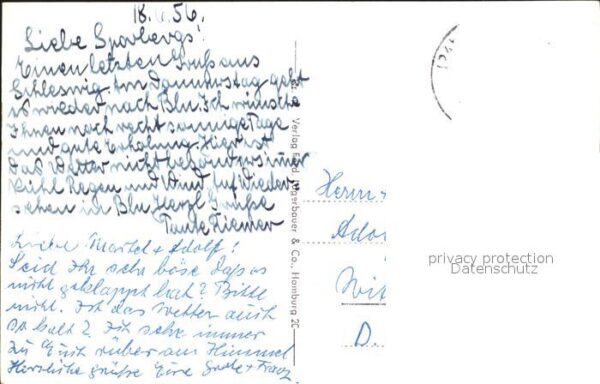 18.6.56.
Liebe Sporbergs!
Einen letzten Gruß aus
Schleswig. Am Donnerstag geht
es wieder nach Bln. Ich wünsche
Ihnen noch recht sonnige Tage
und gute Erholung. Hier ist
das Wetter nicht besonders immer
kühl Regen und Wind. Auf Wieder-
sehen in Bln. Herzl. Grüße
Tante Kiemer
Liebe Martel + Adolf!
Seid Ihr sehr böse daß es
nicht geklappt hat? Bitte
nicht. Ist das Wetter auch
so kalt? Ich sehe immer
zu Euch rüber am Himmel
Herzliche Grüße Eure Grete + Franz
Verlag Ferd. Lagerbauer & Co., Hamburg 20
Herrn
Adol
Wit
D.
privacy protection
Datenschutz